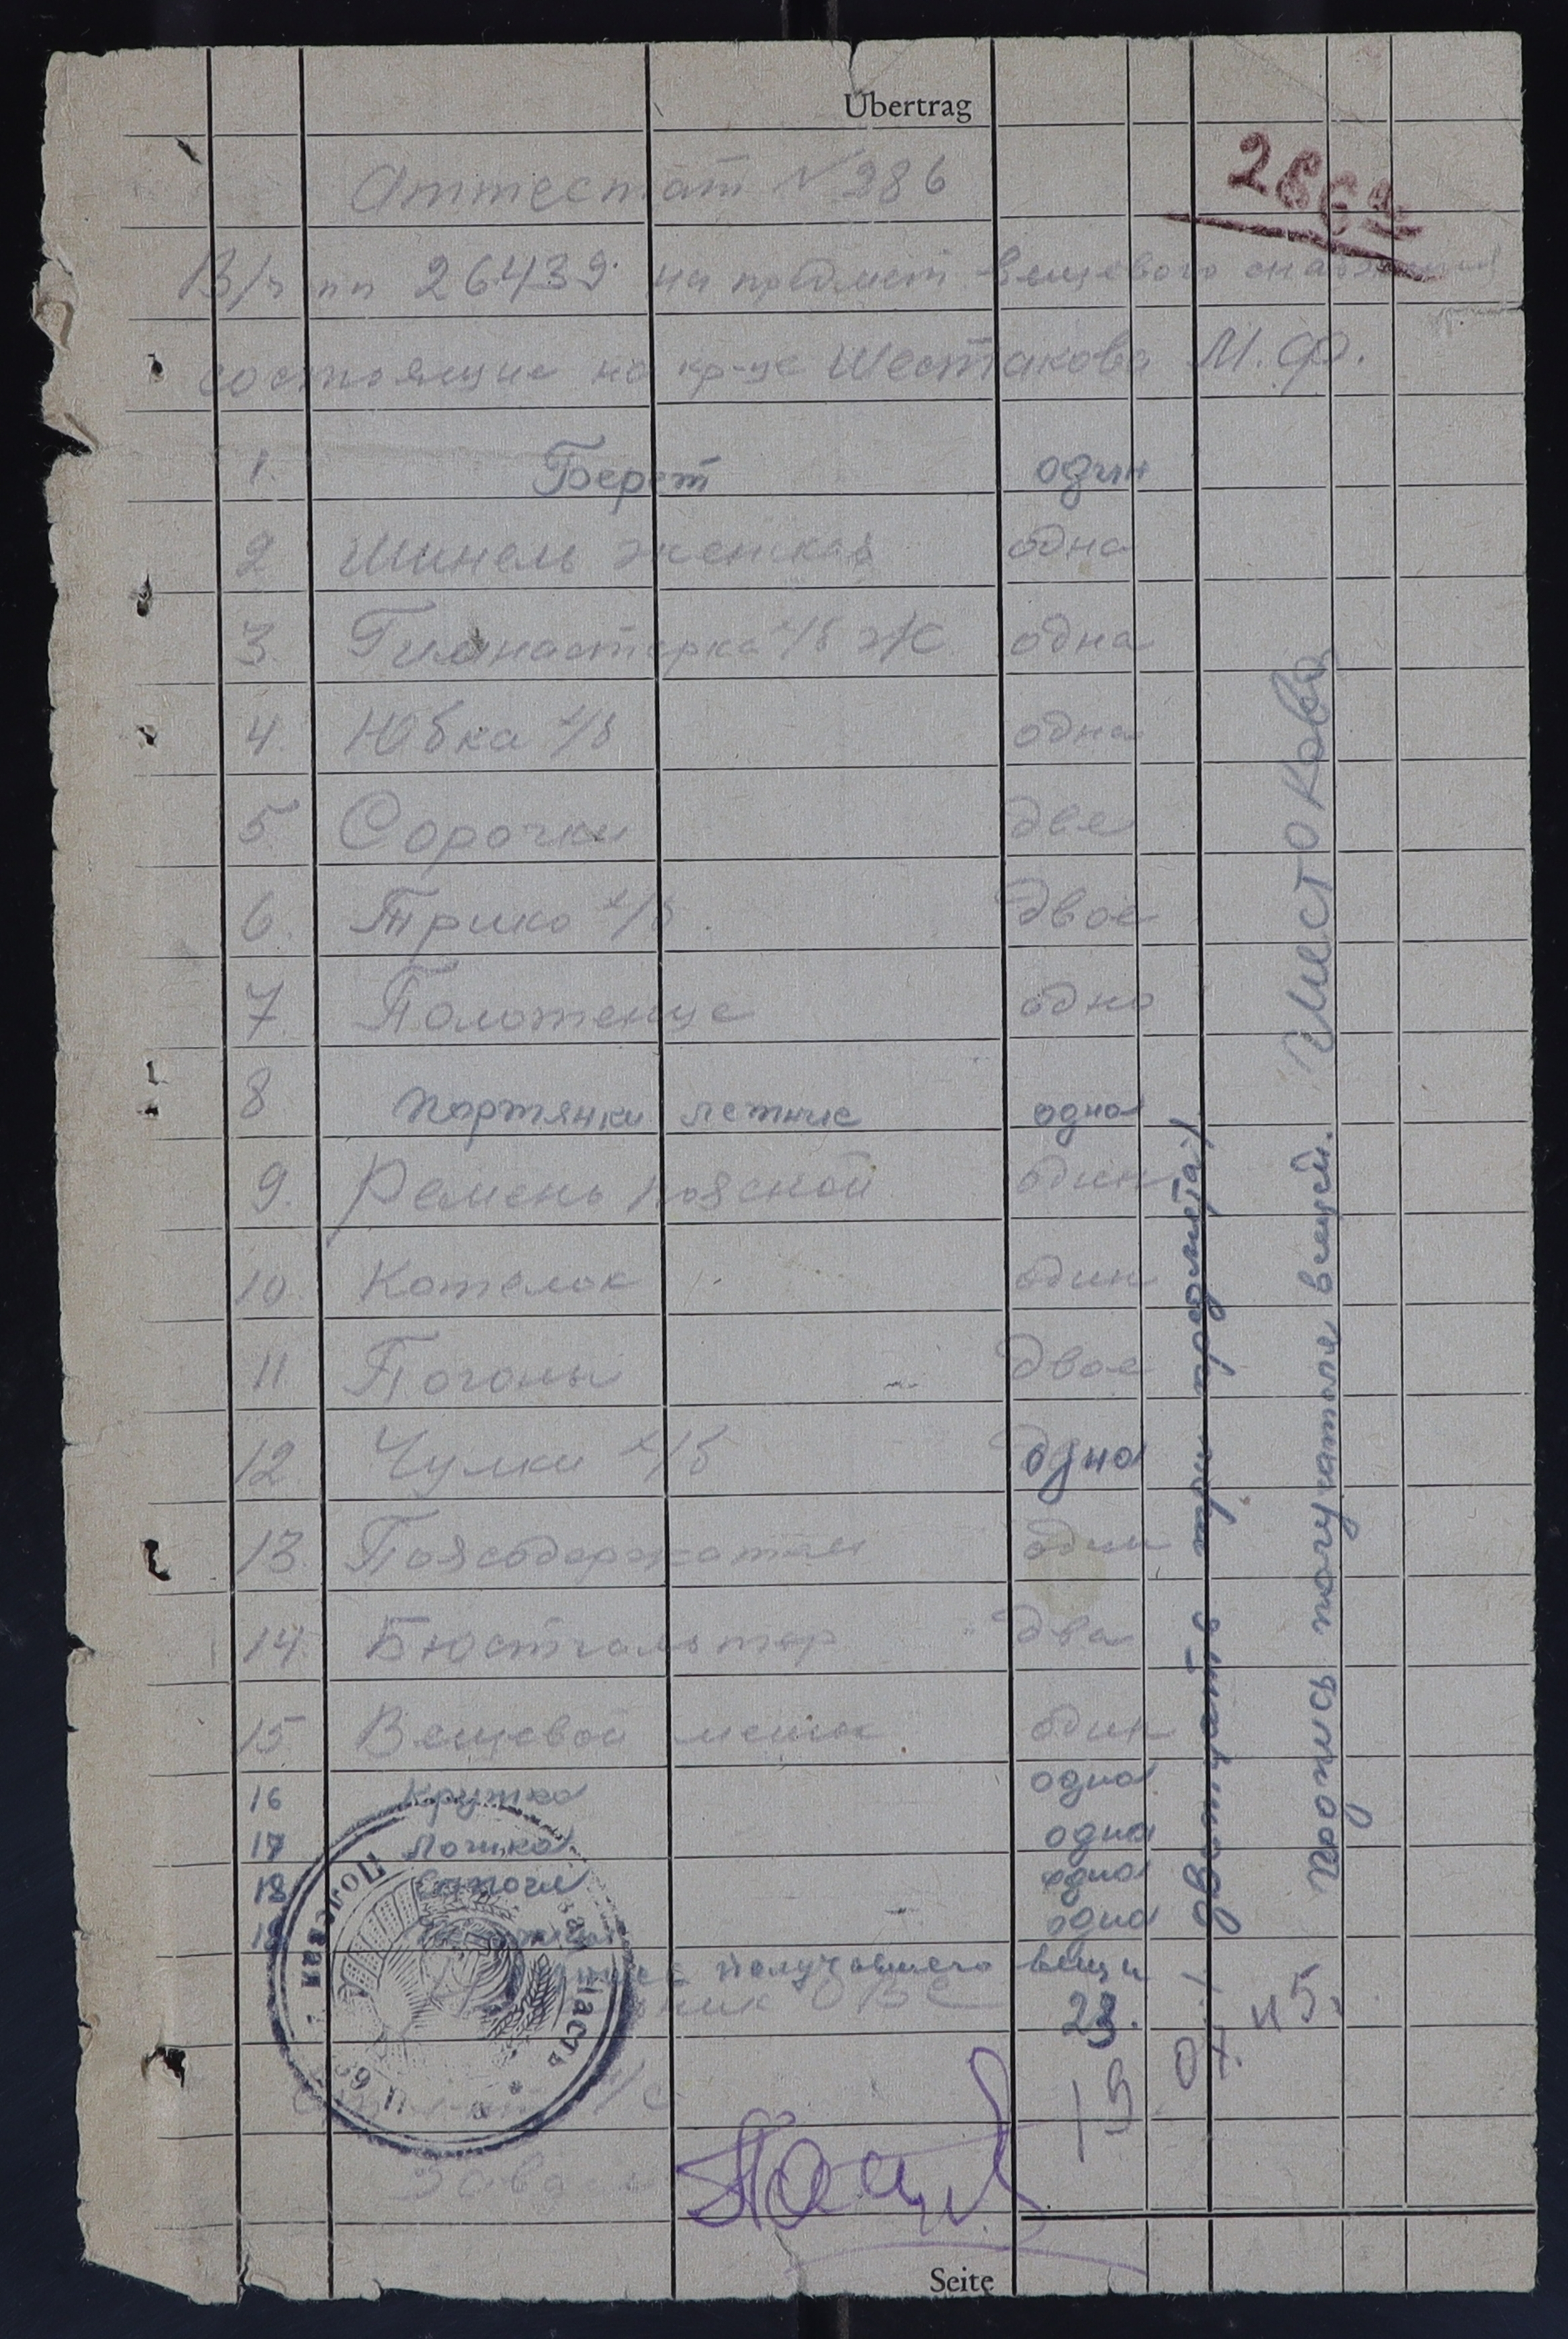 Übertrag
286
Аттестат № 286
В/ч пп 26439 на предмет вещевого снабжения
состоящие на кр-це Шестакова М. Ф.
1. Берет один
2 Шинель женская одна
3. Гимнастерка х/б ж. одна
4. Юбка х/б одна
5. Сорочки две
6. Трико х/б двое
7. Полотенце одно
8 портянки летние одна
9. Ремень поясной один
10. Котелок один
11. Погоны двое
12. Чулки х/б одна
13. один
14. Бюстгальтер два
15. Вещевой мешок один
16 Кружка одна
17 Ложка одна
18 Сапоги одна
19 одна
получавшего вещи
ОВС
23.
19
Полевая
часть
предмета)
Подпись получателя вещей. Шестакова
Seite